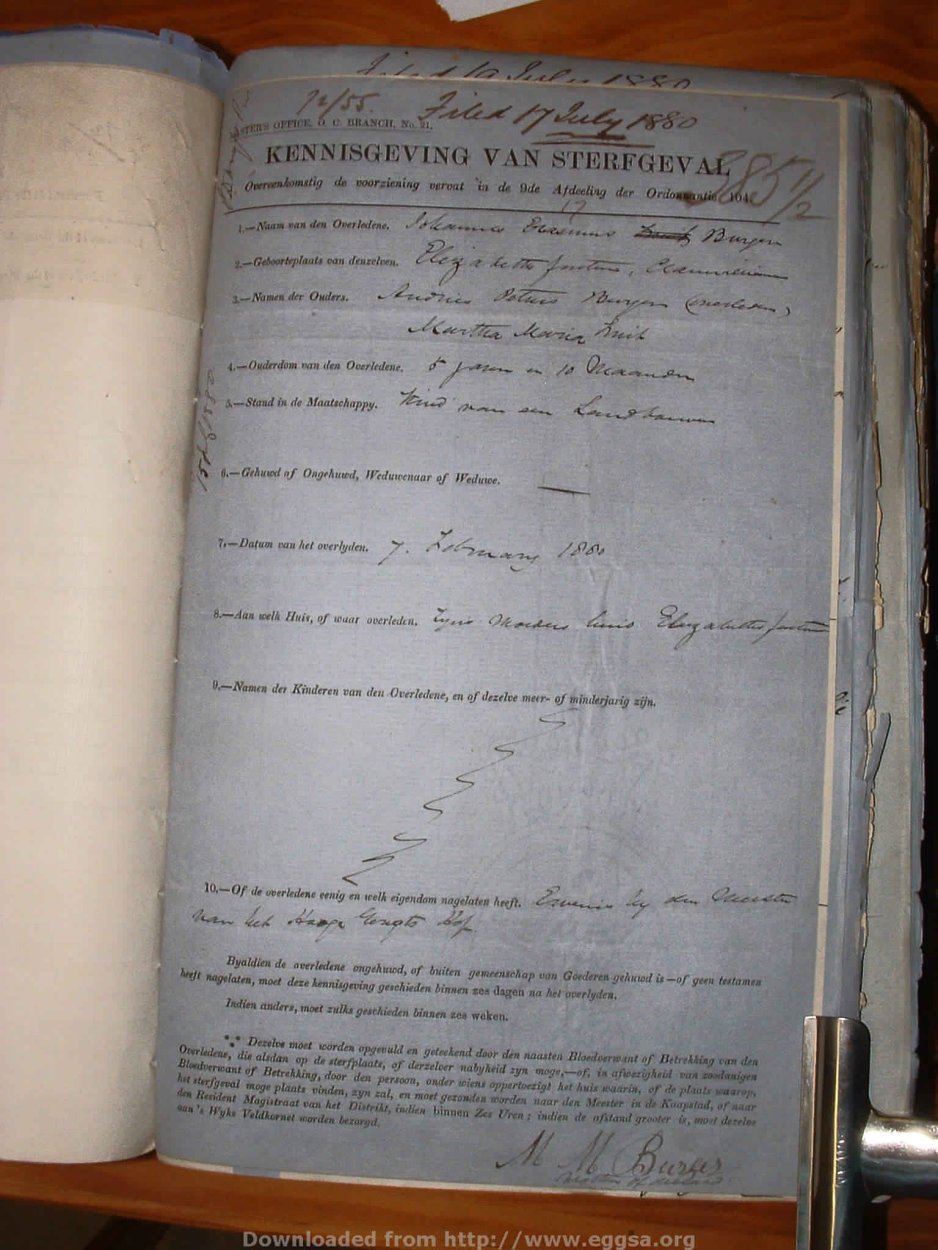 Filed 19 July 1880
72/55. Filed 17 July 1880
MASTER'S OFFICE, O. C. BRANCH, No. 21.
KENNISGEVING VAN STERFGEVAL
Overeenkomstig de voorziening vervat in de 9de Afdeeling der Ordonnantie 104.
1.—Naam van den Overledene. Johannes Erasmus Burger
2.—Geboorteplaats van denzelven. Elizabeths fontein,
3.—Namen der Ouders. Andries Petrus Burger (overleden)
Martha Maria
4.—Ouderdom van den Overledene. 5 jaren en 10 Maanden
5.—Stand in de Maatschappy. Kind van een Landbouwer
6.—Gehuwd of Ongehuwd, Weduwenaar of Weduwe. —
7.—Datum van het overlyden. 7. February 1880
8.—Aan welk Huis, of waar overleden. Zyns Moeders huis Elizabeths fontein
9.—Namen der Kinderen van den Overledene, en of dezelve meer- of minderjarig zijn.
10.—Of de overledene eenig en welk eigendom nagelaten heeft. Erfenis by den Meester
van het Hooge Geregts Hof.
Byaldien de overledene ongehuwd, of buiten gemeenschap van Goederen gehuwd is—of geen testamen
heeft nagelaten, moet deze kennisgeving geschieden binnen zes dagen na het overlyden.
Indien anders, moet zulks geschieden binnen zes weken.
*** Dezelve moet worden opgevuld en geteekend door den naasten Bloedverwant of Betrekking van den
Overledene, die alsdan op de sterfplaats, of derzelver nabyheid zyn moge,—of, in afwezigheid van zoodanigen
Bloedverwant of Betrekking, door den persoon, onder wiens oppertoezigt het huis waarin, of de plaats waarop,
het sterfgeval moge plaats vinden, zyn zal, en moet gezonden worden naar den Meester in de Kaapstad, of naar
den Resident Magistraat van het Distrikt, indien binnen Zes Uren; indien de afstand grooter is, moet dezelve
aan 's Wyks Veldkornet worden bezorgd.
M M Burger
Mother of deceased
Downloaded from http://www.eggsa.org